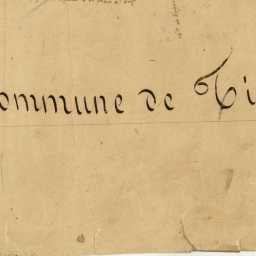 ommune de Ti